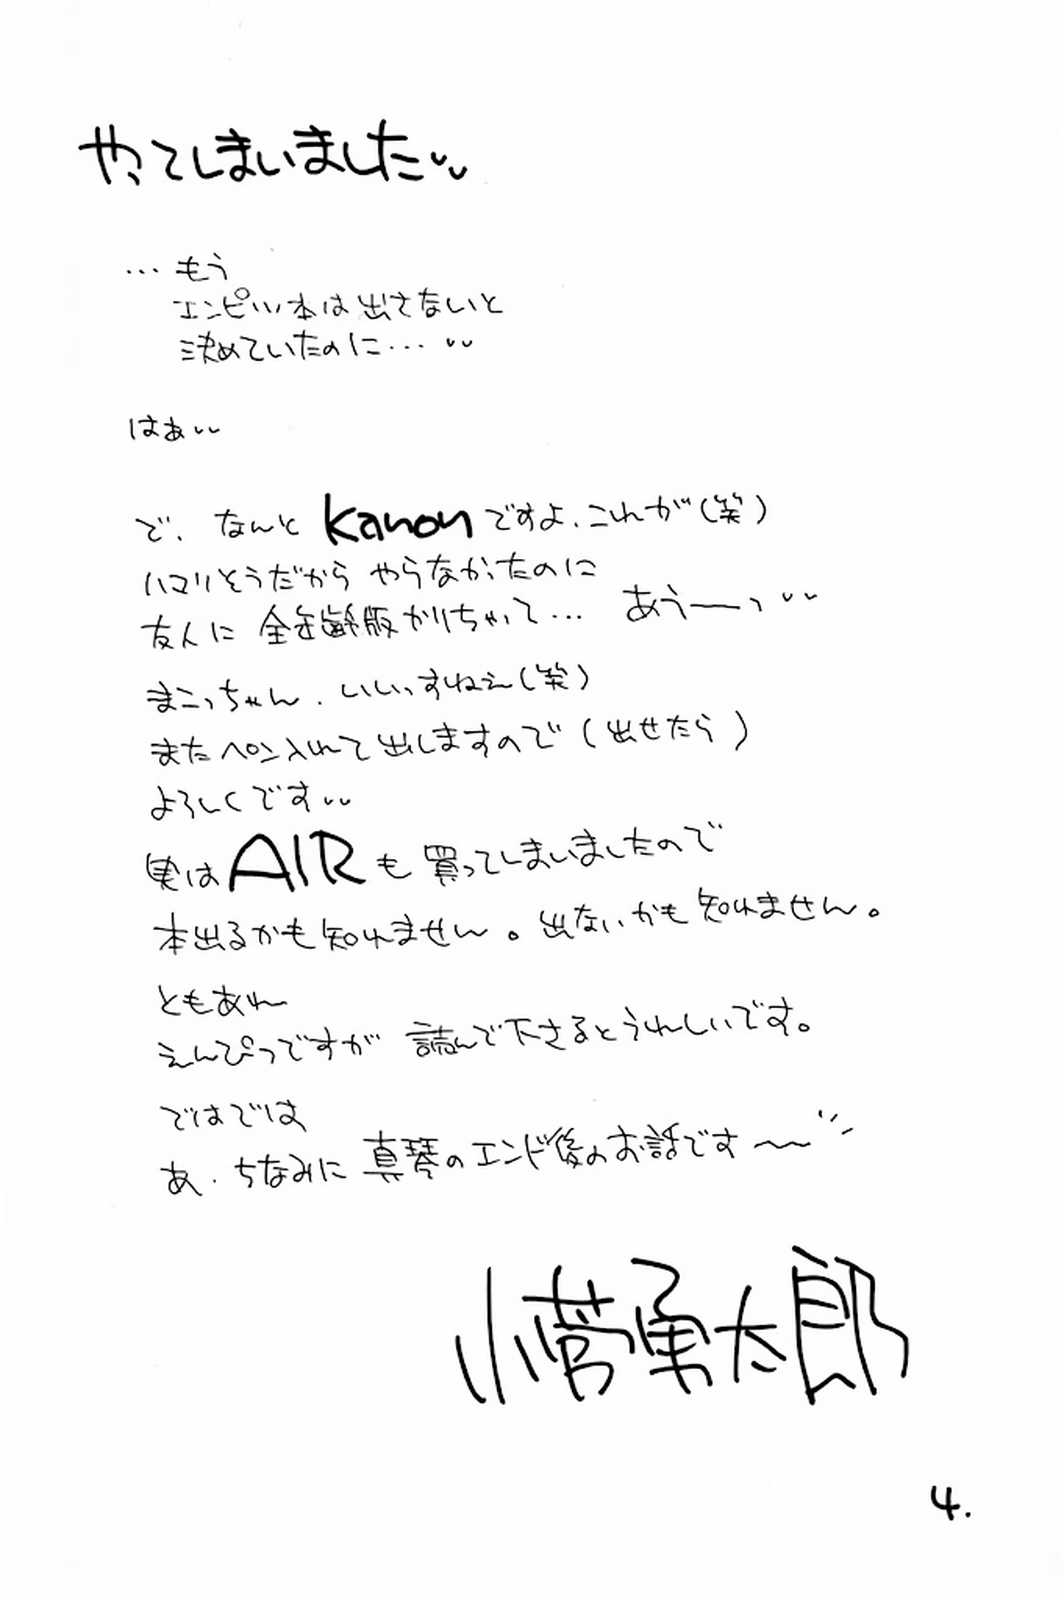 やってしまいました〃
…もう
エンピツ本は出さないと
決めていたのに…〃
はぁ〃
で、なんとKanonですよ、これが(笑)
ハマリそうだからやらなかったのに
友人に全年齢版かりちゃって… あうーっ〃
まこっちゃん、いいっすねえ(笑)
またペン入れて出しますので(出せたら)
よろしくです〃
実はAIRも買ってしまいましたので
本出るかも知れません。出ないかも知れません。
ともあれ
えんぴつですが読んで下さるとうれしいです。
ではでは
あ、ちなみに真琴のエンド後のお話です〜〃
小菅勇太郎
4.